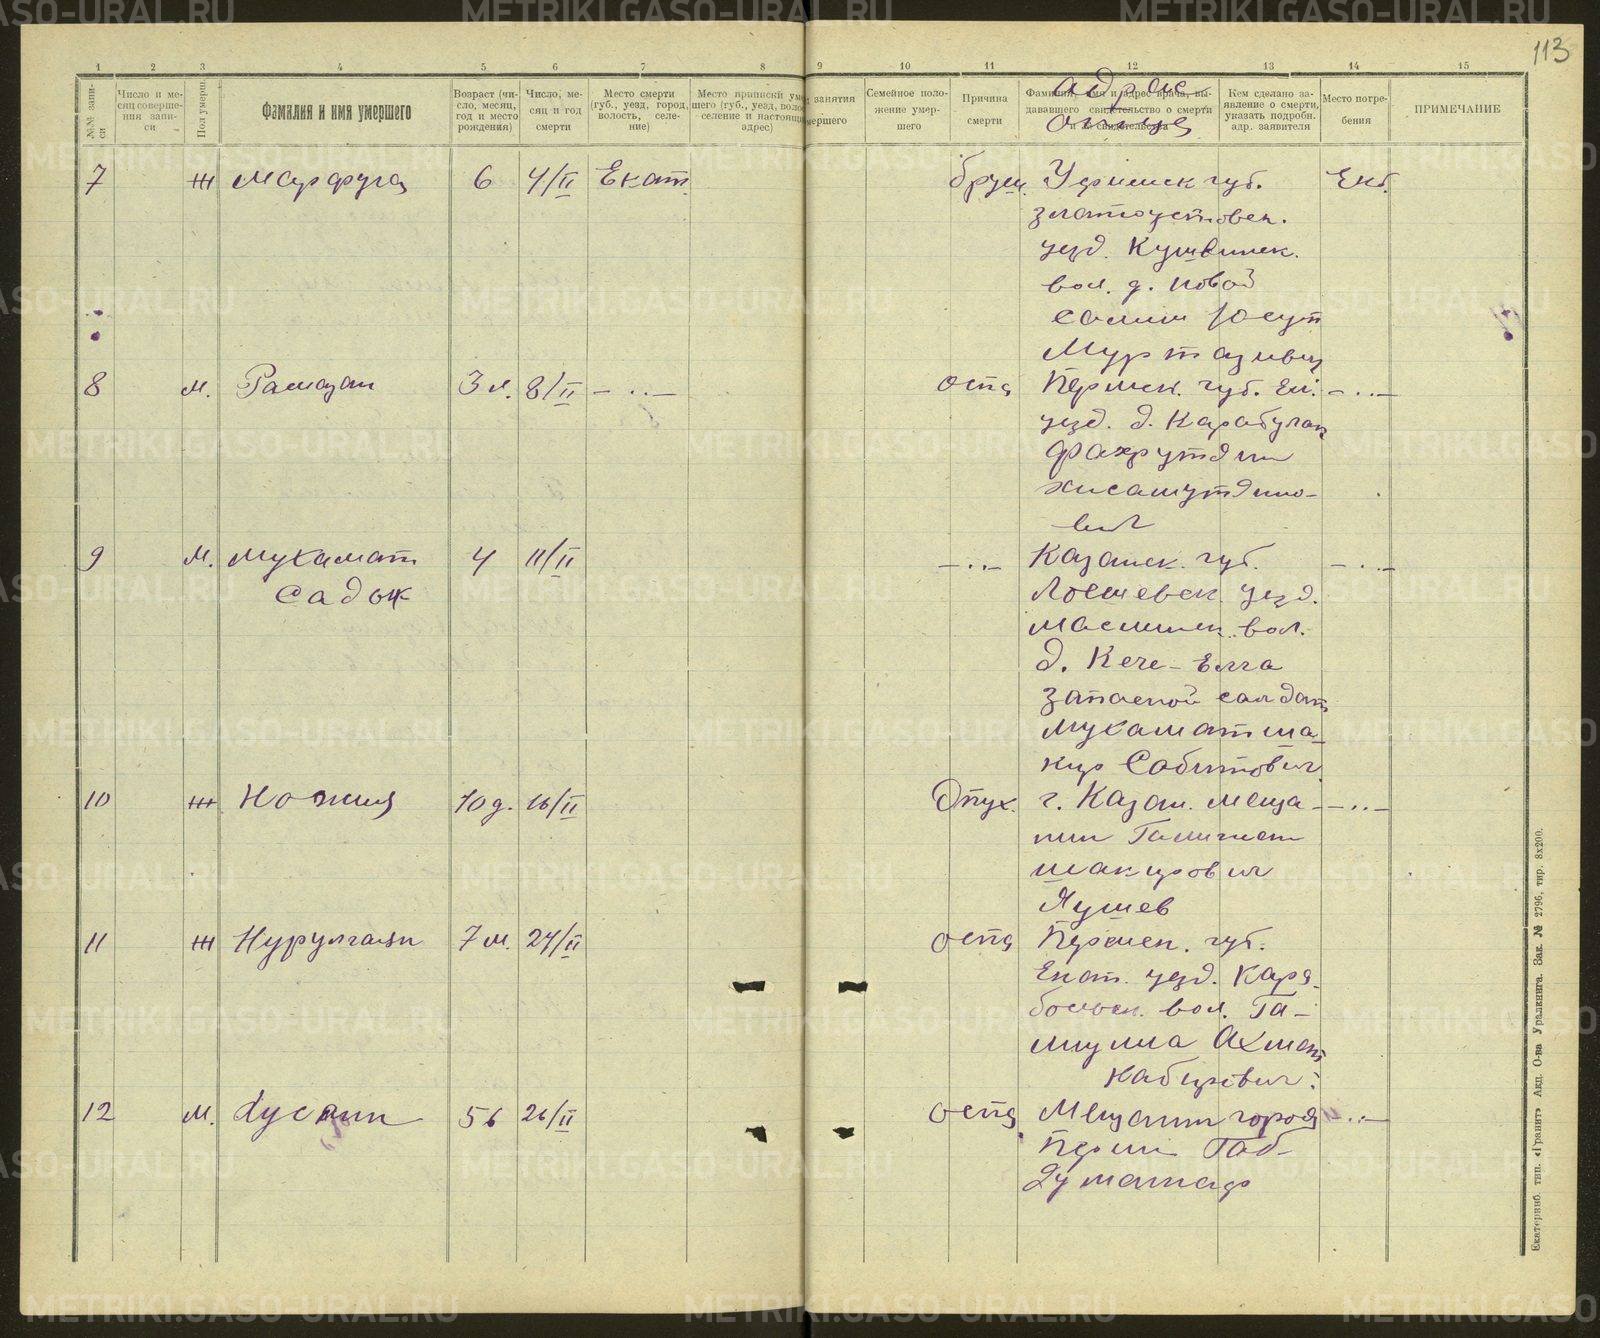 113
1 2 3 4 5 6 7 8 9 10 11 12 13 14 15
№№ записи
Число и месяц совершения записи
Пол умерш.
Фамилия и имя умершего
Возраст (число, месяц, год и место рождения)
Число, месяц и год смерти
Место смерти (губ., уезд, город, волость, селение)
Место приписки
шего (губ., уезд,
селение и
адрес)
занятия
Семейное положение умершего
Причина смерти
Фамилия, имя и адрес врача, выдававшего свидетельство о смерти
адрес
отца
Кем сделано заявление о смерти, указать подробн. адр. заявителя
Место погребения
ПРИМЕЧАНИЕ
7 ж Марфуга 6 4/II Екат. брүш. Уфимск губ. Екб.
златоустовск.
уезд.
вол. д. Новой
Юсуп
Муртазивич
8 м. Рамазан 3 м. 8/II — ..— оспа Пермск. губ. Ек. —..—
уезд. д. Карабулак
Фахрутдин
хисамутдино-
вич
9 м. Мухамат 4 11/II —..— Казанск. губ. —..—
Садык
уезд.
вол.
д. Кече-Елга
запасной салдат
Мухаматша-
кир Сабитович
10 ж 10 д. 16/II Опух. г. Казан. меща- —..—
нин
шакирович
Яушев
11 ж 7 м. 24/II оспа Пермск. губ.
Екат. уезд. Кара-
больск. вол. Га-
Ахмат
Кабирович
12 м. Хусаин 56 26/II оспа Мещанин города —..—
Перми Габ-
Екатеринб. тип. «Гранит» Акц. О-ва Уралкнига. Зак. № 2796, тир. 8х200.
METRIKI.GASO-URAL.RU